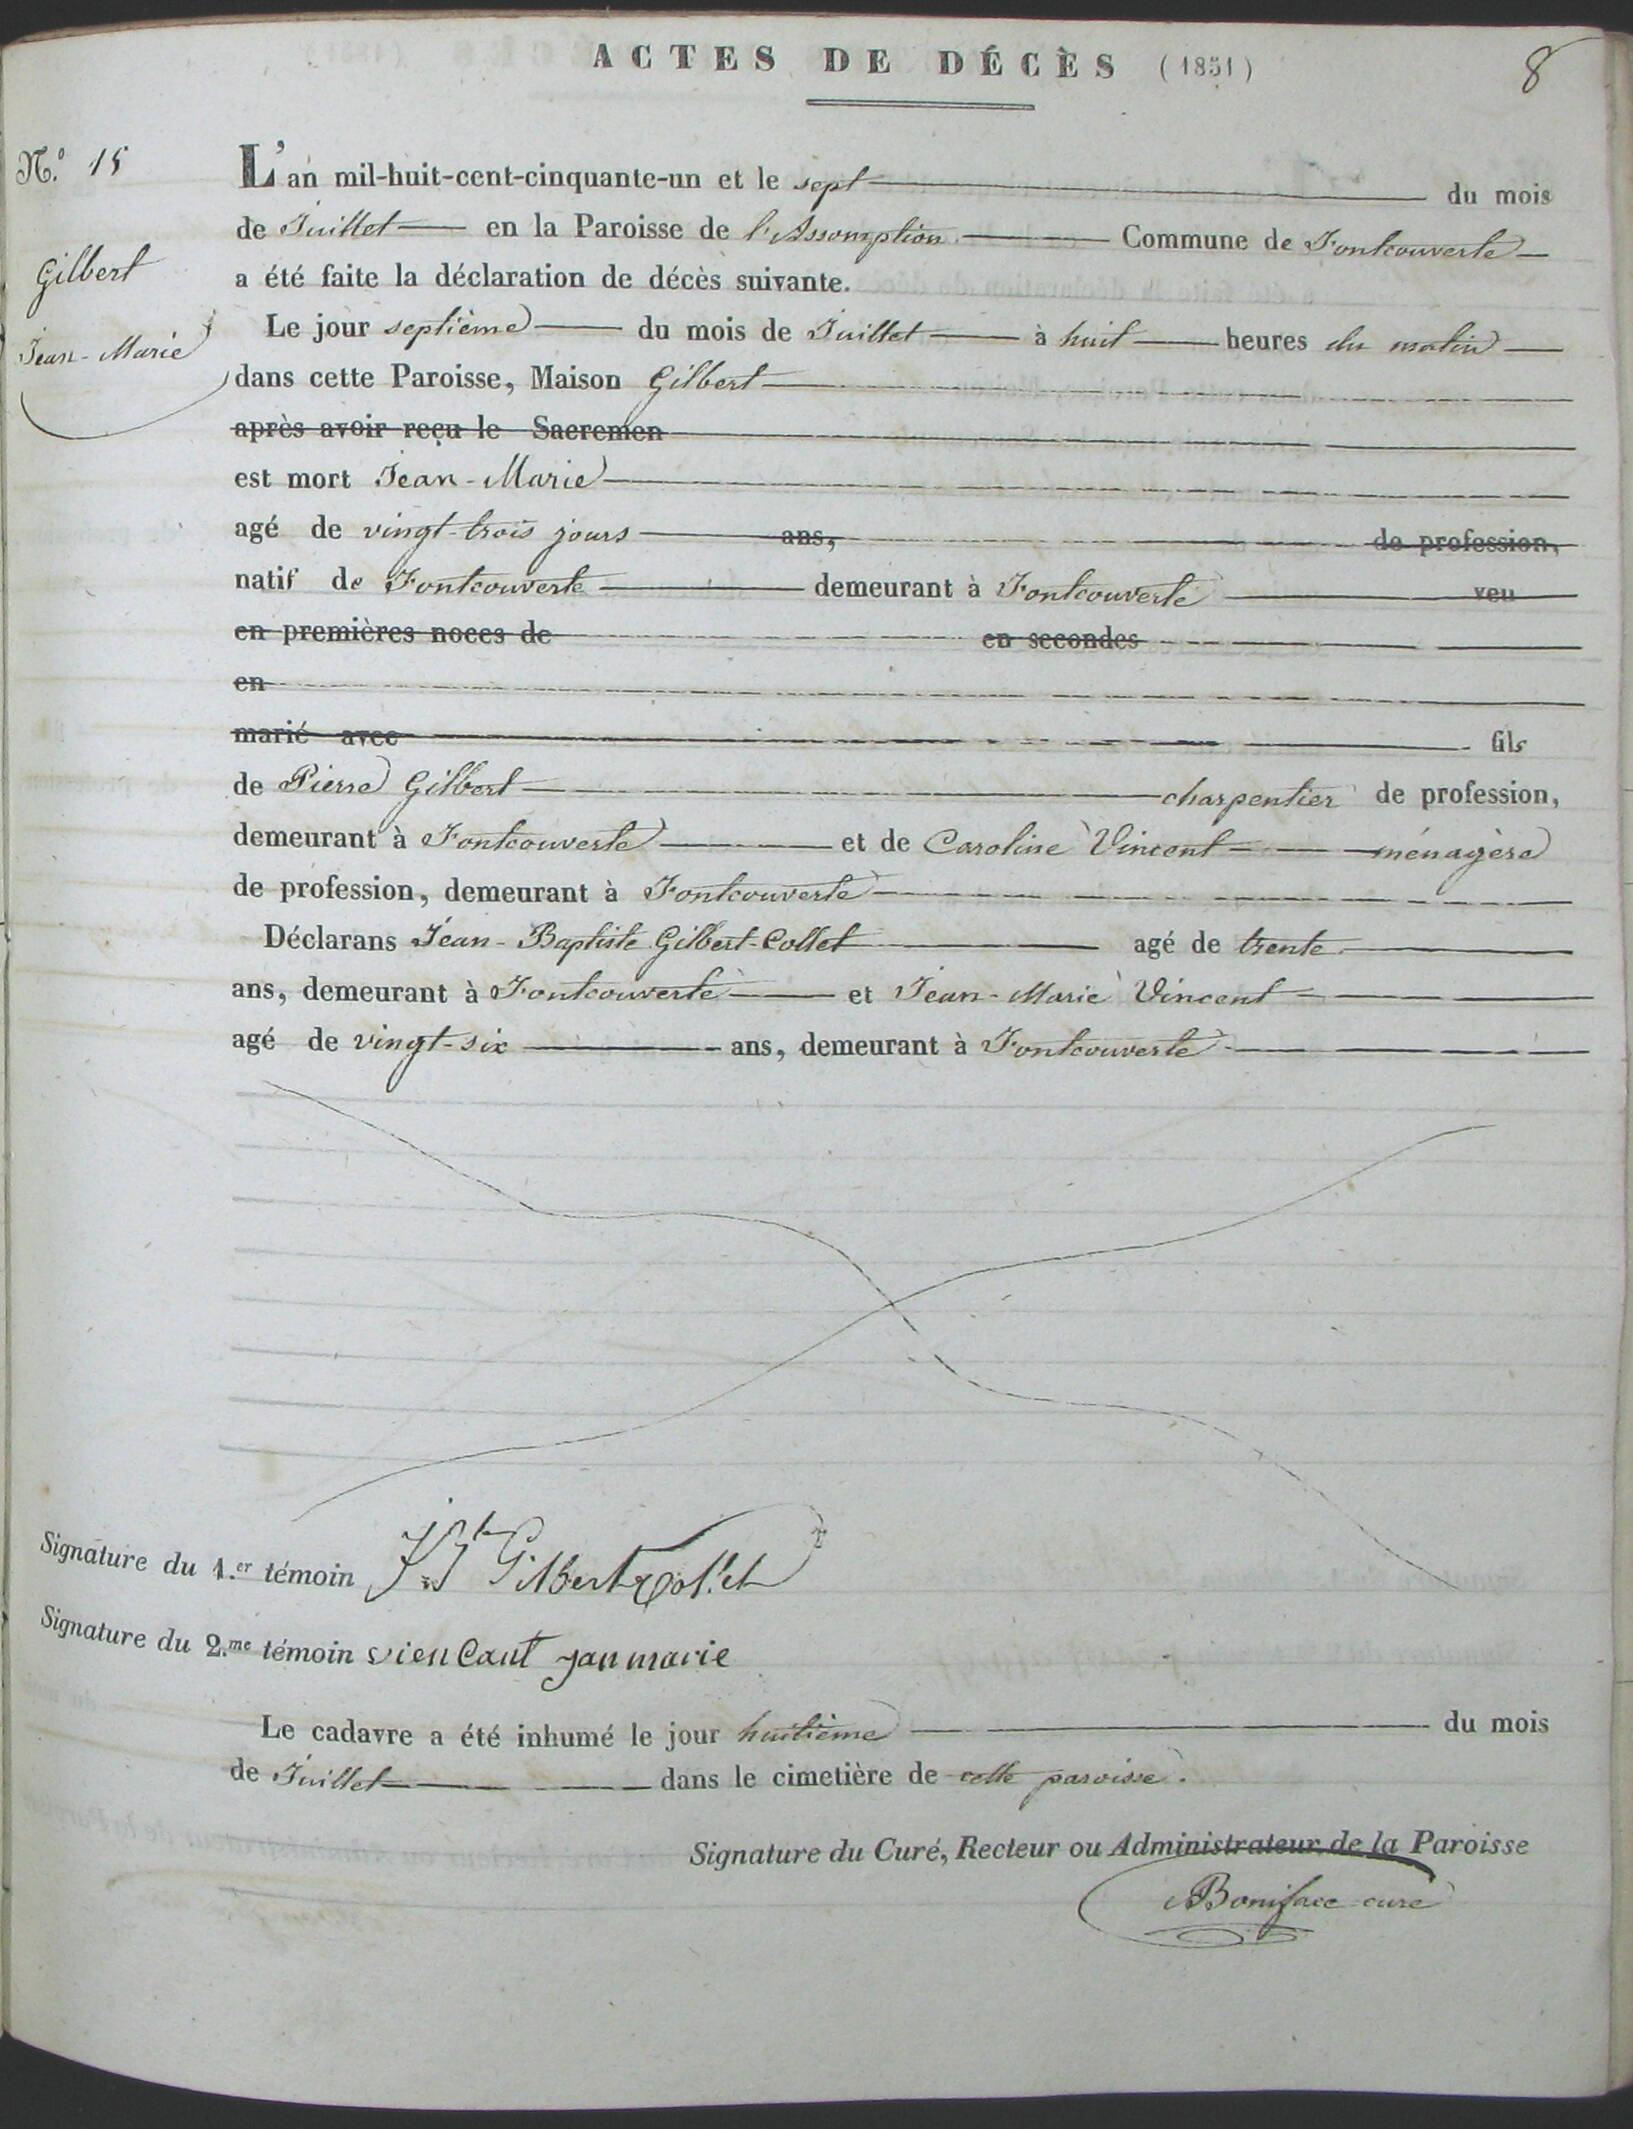 ACTES DE DÉCÈS (1851)
8
N.º 15
Gilbert
Jean-Marie
L'an mil-huit-cent-cinquante-un et le sept du mois
de Juillet en la Paroisse de l'Assomption Commune de Fontcouverte
a été faite la déclaration de décès suivante.
Le jour septième du mois de Juillet à huit heures du matin
dans cette Paroisse, Maison Gilbert
après avoir reçu le Sacremen
est mort Jean-Marie
agé de vingt-trois jours ans, de profession,
natif de Fontcouverte demeurant à Fontcouverte veu
en premières noces de en secondes
en
marié avec fils
de Pierre Gilbert charpentier de profession,
demeurant à Fontcouverte et de Caroline Vincent ménagère
de profession, demeurant à Fontcouverte
Déclarans Jean-Baptiste Gilbert-Collet agé de trente
ans, demeurant à Fontcouverte et Jean-Marie Vincent
agé de vingt-six ans, demeurant à Fontcouverte
Signature du 1.er témoin J.Bte Gilbert Collet
Signature du 2.me témoin viencant jan marie
Le cadavre a été inhumé le jour huitième du mois
de Juillet dans le cimetière de cette paroisse.
Signature du Curé, Recteur ou Administrateur de la Paroisse
Boniface curé